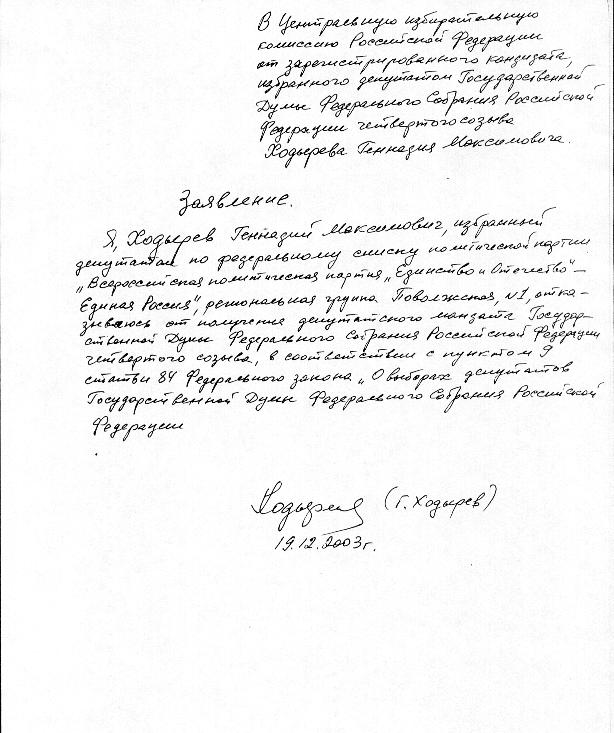 В Центральную избирательную
комиссию Российской Федерации
от зарегистрированного кандидата,
избранного депутатом Государственной
Думы Федерального Собрания Российской
Федерации четвертого созыва
Ходырева Геннадия Максимовича.
Заявление.
Я, Ходырев Геннадий Максимович, избранный
депутатом по федеральному списку политической партии
„Всероссийская политическая партия „Единство и Отечество"–
Единая Россия", региональная группа Поволжская, N1, отка-
зываюсь от получения депутатского мандата Государ-
ственной Думы Федерального Собрания Российской Федерации
четвертого созыва, в соответствии с пунктом 9
статьи 84 Федерального закона „О выборах депутатов
Государственной Думы Федерального Собрания Российской
Федерации
Ходырев (Г. Ходырев)
19.12.2003г.